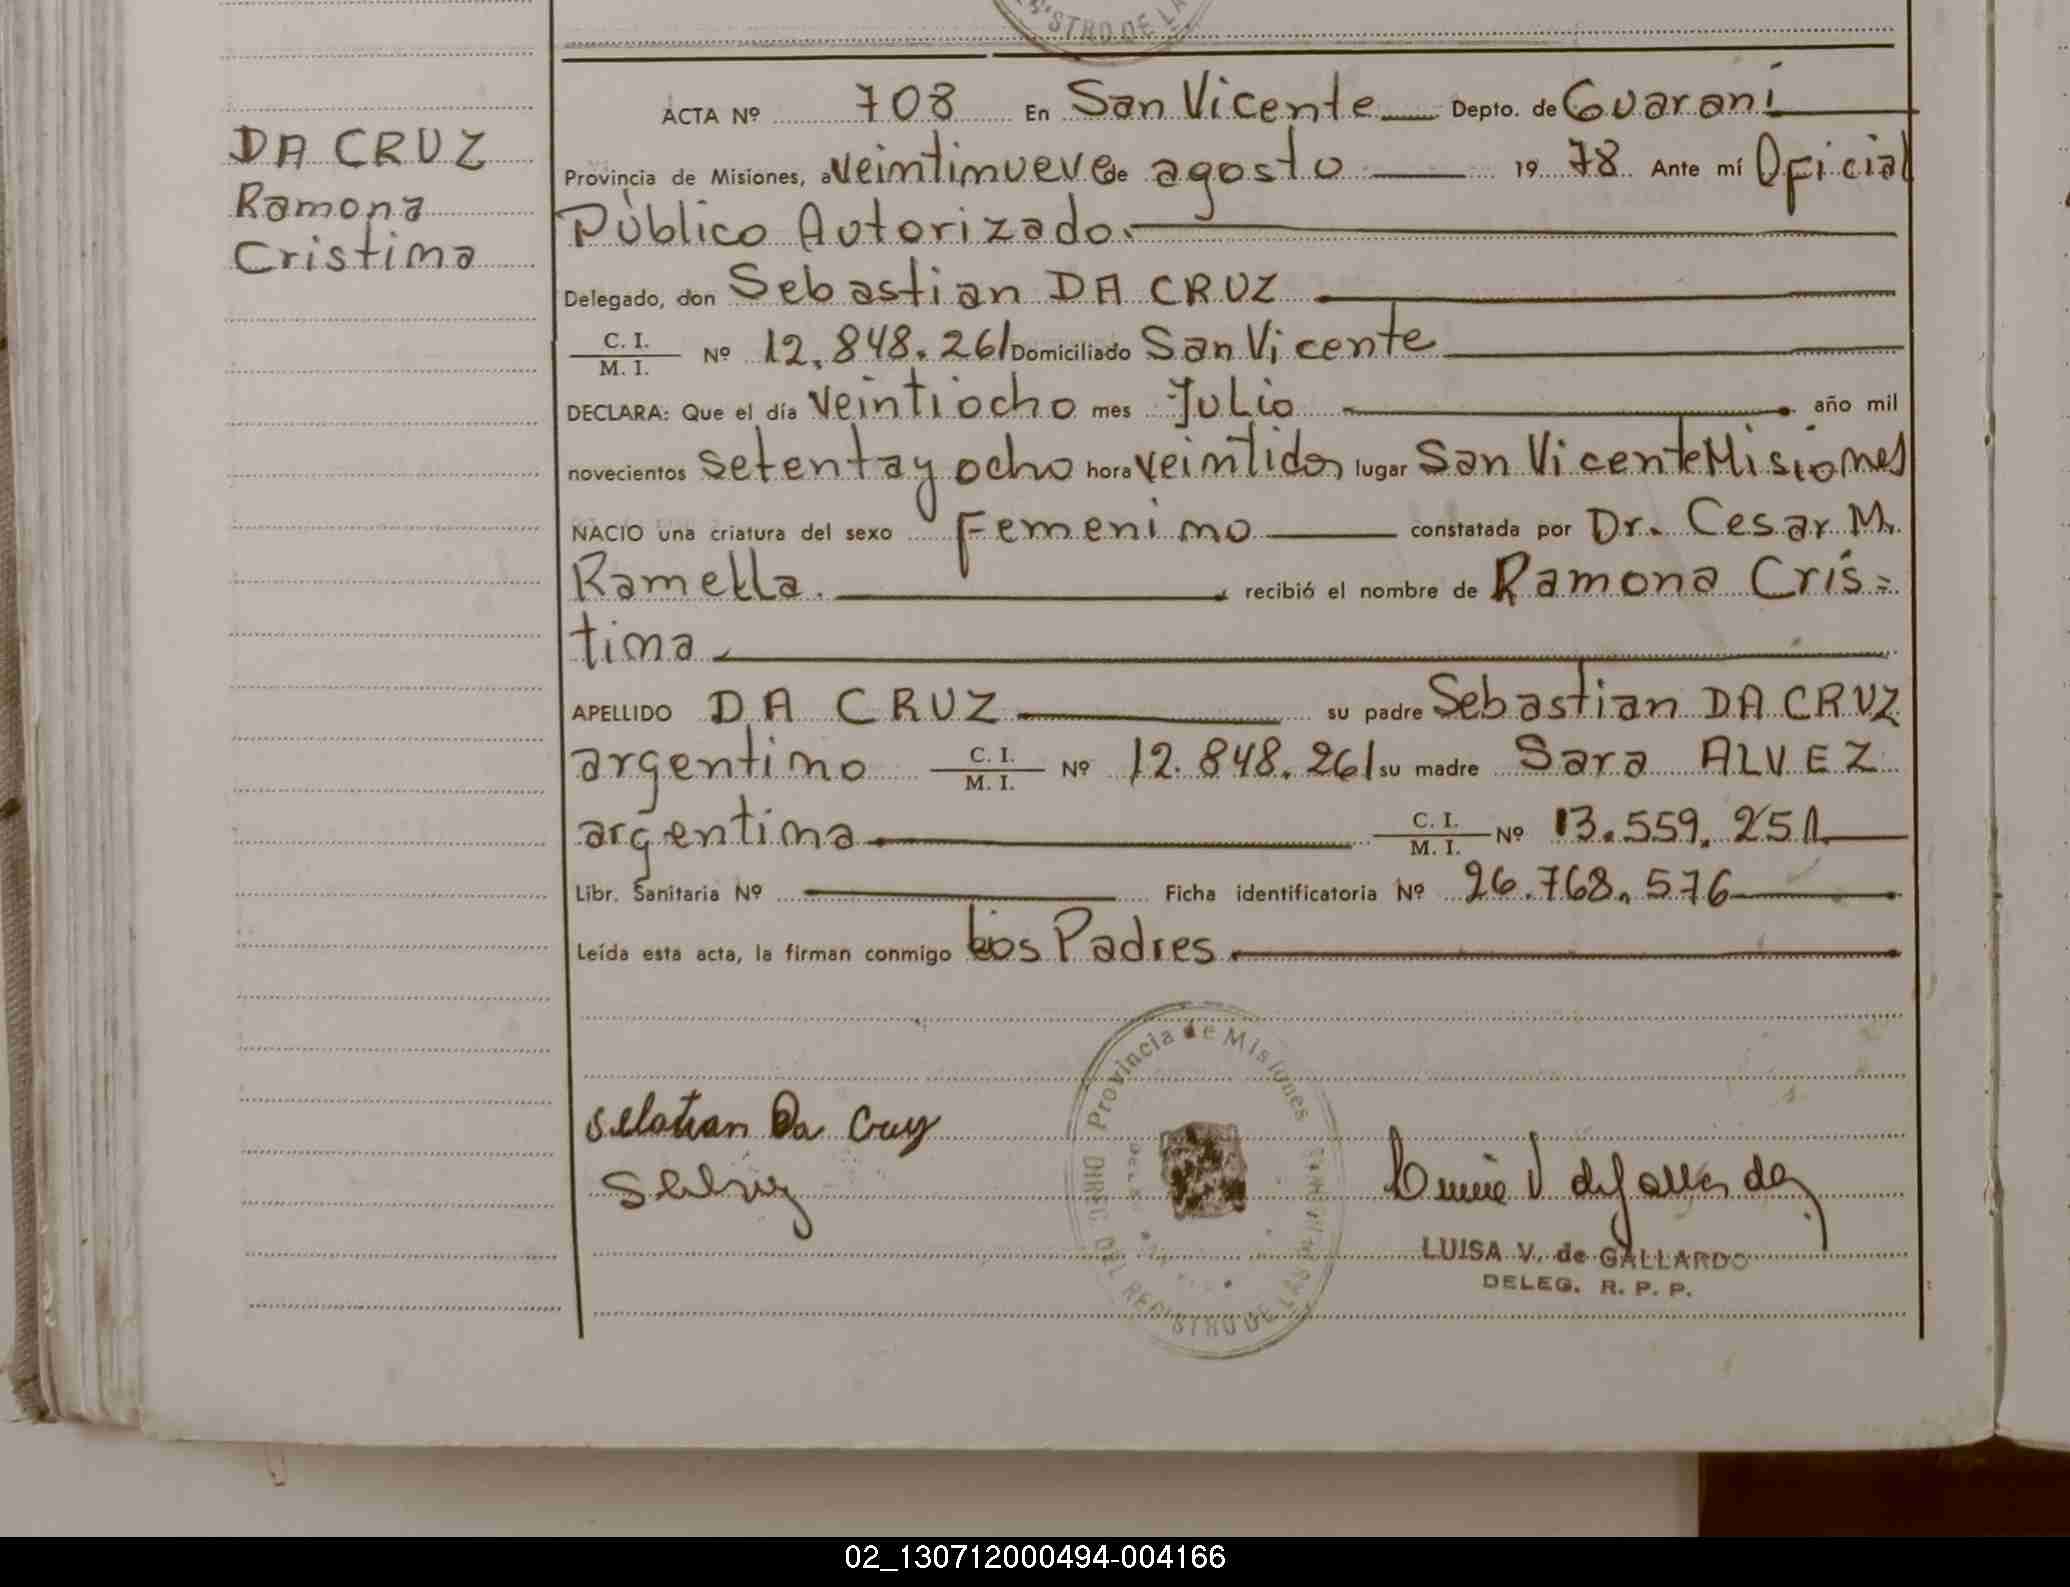 DA CRUZ
Ramona
Cristina
STRO DE LA
ACTA Nº 708 En San Vicente Depto. de Guaraní
Provincia de Misiones, a veintinueve de agosto 1978 Ante mí Oficial
Público Autorizado.
Delegado, don Sebastian DA CRUZ
C. I.
M. I. Nº 12.848.261 Domiciliado San Vicente
DECLARA: Que el día veintiocho mes Julio año mil
novecientos setenta y ocho hora veintidos lugar San Vicente Misiones
NACIO una criatura del sexo Femenino constatada por Dr. Cesar M.
Ramella. recibió el nombre de Ramona Cris=
tina
APELLIDO DA CRUZ su padre Sebastian DA CRUZ
argentino C. I.
M. I. Nº 12.848.261 su madre Sara ALVEZ
argentina C. I.
M. I. Nº 13.559.251
Libr. Sanitaria Nº Ficha identificatoria Nº 26.768.576
Leída esta acta, la firman conmigo Los Padres
Provincia de Misiones
DIREC. DEL REGISTRO DE LAS
Sebastian Da Cruz
LUISA V. de GALLARDO
DELEG. R. P. P.
02_130712000494-004166